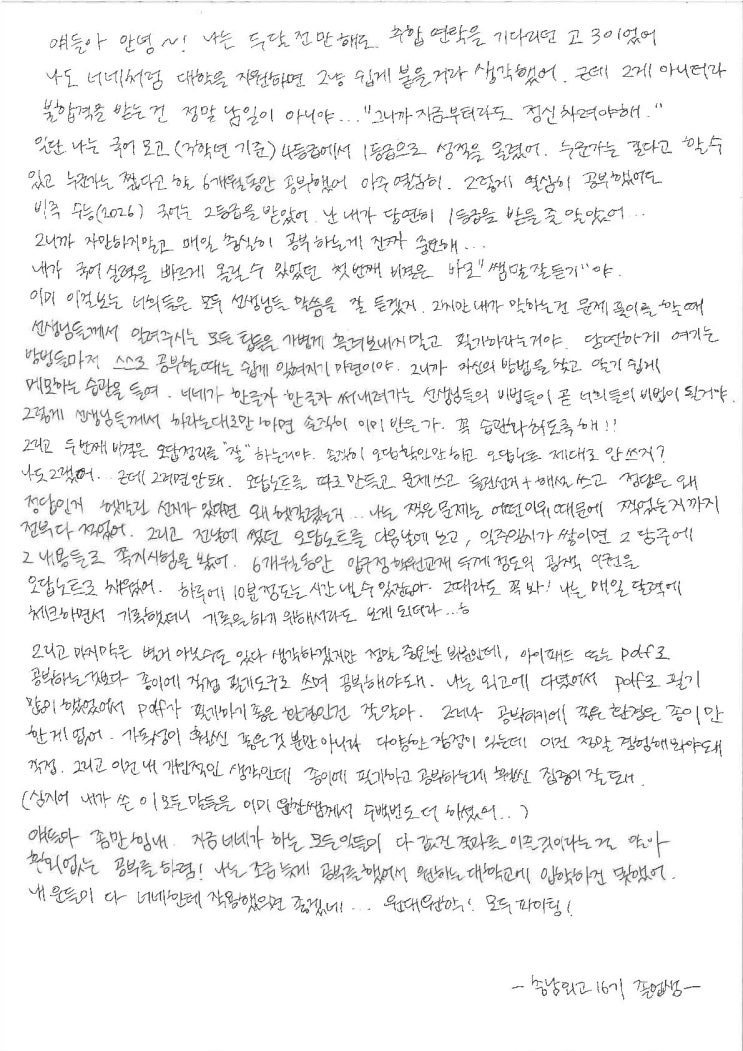 얘들아 안녕~! 나는 두달 전만 해도 추합 연락을 기다리던 고3이었어
나도 너네처럼 대학을 지원하면 그냥 쉽게 붙을거라 생각했어. 근데 그게 아니더라
불합격을 받는 건 정말 남일이 아니야... "그니까 지금부터라도 정신차려야해."
일단 나는 국어 모고(저학년 기준) 4등급에서 1등급으로 성적을 올렸어. 누군가는 길다고 할 수
있고 누군가는 짧다고 할 6개월동안 공부했어 아주 열심히. 그렇게 열심히 공부했어도
비록 수능(2026) 국어는 2등급을 받았어. 난 내가 당연히 1등급을 받을 줄 알았어...
그니까 자만하지말고 매일 충실히 공부하는게 진짜 중요해...
내가 국어 실력을 바르게 올릴 수 있었던 첫번째 비결은 바로 "쌤말 잘 듣기"야.
이미 이걸 보는 너희들은 모두 선생님들 말씀을 잘 듣겠지. 그치만 내가 말하는건 문제 풀이를 할 때
선생님들께서 알려주시는 모든 팁들을 가볍게 흘려보내지말고 필기하라는거야. 당연하게 여기는
방법들마저 스스로 공부할때는 쉽게 잊혀지기 마련이야. 그니까 자신의 방법을 찾고 알기 쉽게
메모하는 습관을 들여. 너네가 한글자 한글자 써내려가는 선생님들의 비법들이 곧 너희들의 비법이 될거야.
그렇게 선생님들께서 하라는대로만 하면 솔직히 이미 반은 가. 꼭 습관화 하도록 해!!
그리고 두번째 비결은 오답정리를 "잘" 하는거야. 솔직히 오답확인만 하고 오답노트 제대로 안 쓰지?
나도 그랬어... 근데 그러면 안돼. 오답노트를 따로 만들고 문제쓰고 틀린선지+해설 쓰고 정답은 왜
정답인지 헷갈린 선지가 있다면 왜 헷갈렸는지... 나는 찍은 문제는 어떤이유 때문에 찍었는지까지
전부 다 적었어. 그리고 전날에 썼던 오답노트를 다음날에 보고, 일주일치가 쌓이면 그 담주에
그 내용들로 쪽지시험을 봤어. 6개월동안 입구정 학원교재 두께 정도의 공책 여권을
오답노트로 채웠어. 하루에 10분정도는 시간 낼 수 있잖아. 그때라도 꼭 봐! 나는 매일 달력에
체크하면서 기록했더니 기록을 하기 위해서라도 보게 되더라...ㅎ
그리고 마지막은 별거 아닐수도 있다 생각하겠지만 정말 중요한 부분인데, 아이패드 또는 pdf로
공부하는 것보다 종이에 직접 필기도구로 쓰며 공부해야돼. 나는 외고에 다녔어서 pdf로 필기
많이 했었어서 pdf가 필기하기 좋은 환경인건 잘 알아. 그러나 공부하기에 좋은 환경은 종이만
한게 없어. 가독성이 훨씬 좋은 것 뿐만 아니라 다양한 장점이 있는데 이건 정말 경험해봐야돼
직접. 그리고 이건 내 개인적인 생각인데 종이에 필기하고 공부하는게 훨씬 집중이 잘 돼.
(심지어 내가 쓴 이 모든 말들을 이미 원장쌤께서 수백번도 더 하셨어..)
얘들아 좀만 힘내. 지금 너네가 하는 모든 일들이 다 값진 결과를 이룰것이라는걸 알아
후회없는 공부를 하렴! 나는 조금 늦게 공부를 했어서 원하는 대학교에 입학하진 못했어.
내 운들이 다 너네한테 작용했으면 좋겠네!... 원대원학! 모두 파이팅!
-충남외고 16기 졸업생-